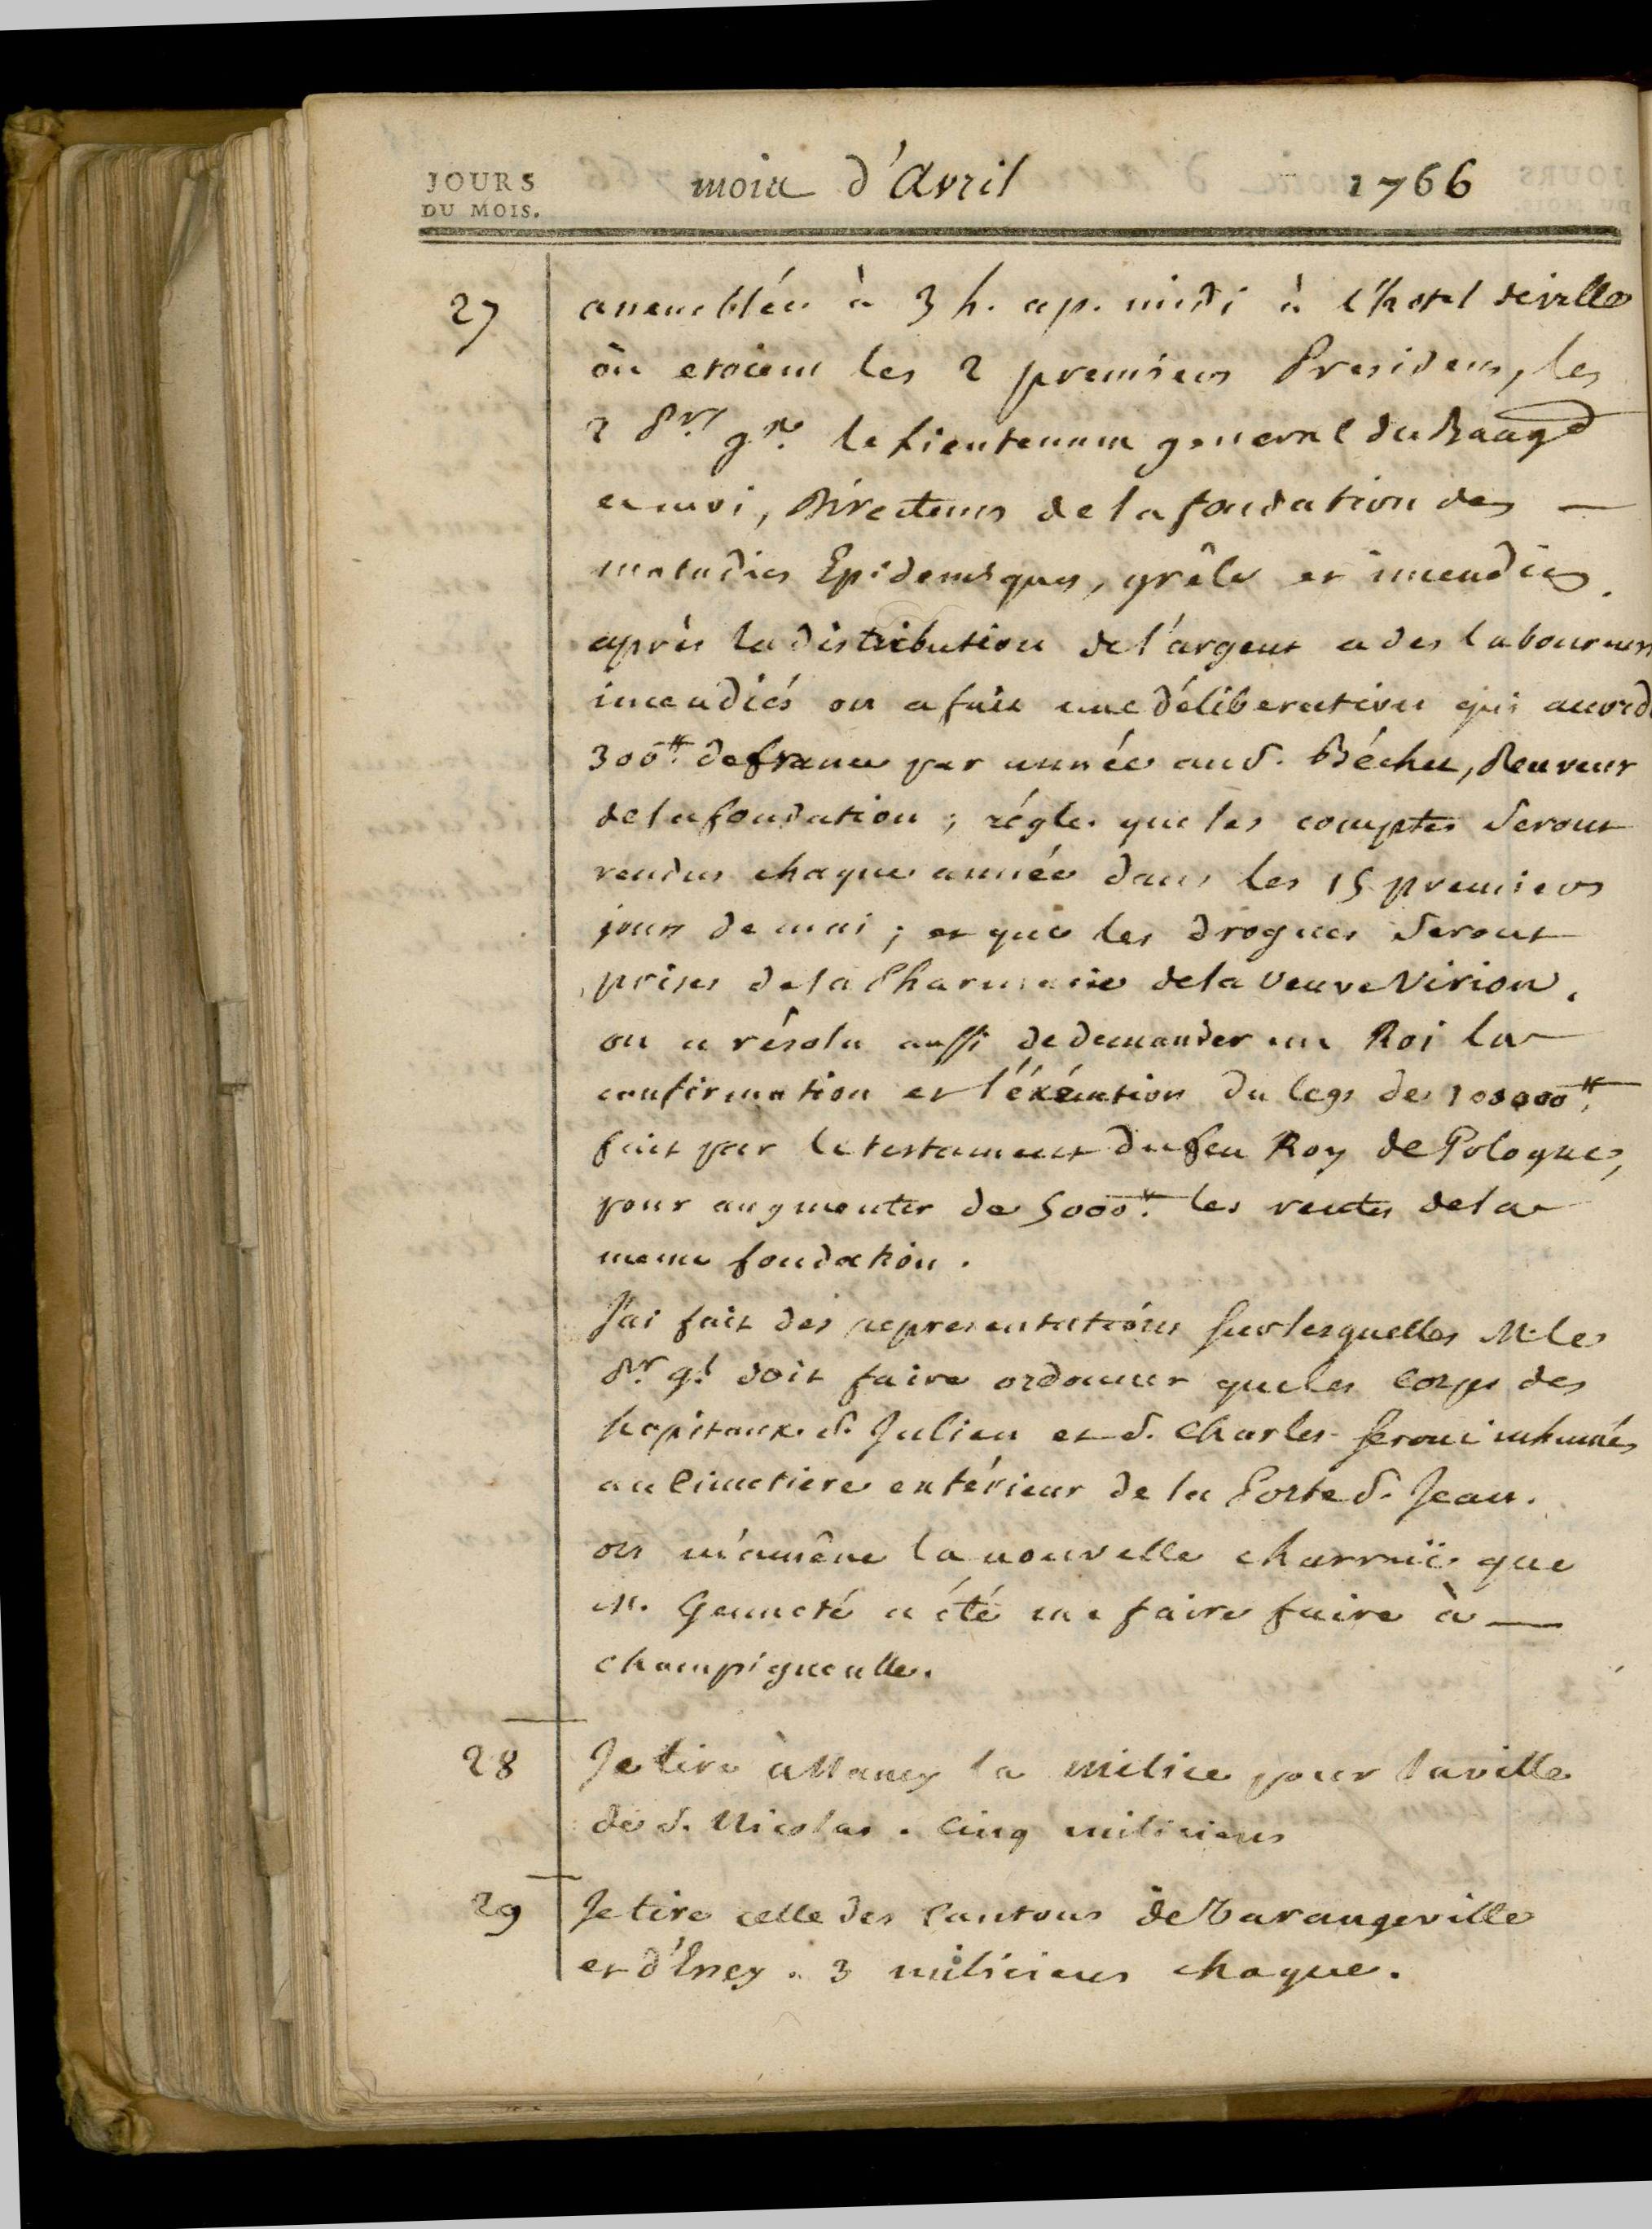 JOURS
DU MOIS.
mois d'Avril 1766
27
assemblée à 3 h. ap. midi à l'hotel de ville
où etoient les 2 premiers Presidens, les
2 Pr. grx. le Lieutenant general du Baage
et moi, Directeurs de la fondation des —
maladies Epidemiques, grêle et incendies.
après la distribution de l'argent a des laboureurs
incendiés on a fait une déliberation qui accorde
300tt. de france par année au S. Béchet, Receveur
de la fondation ; régle. que les comptes seront
rendus chaque année dans les 15 premiers
jours de mai ; et que les drogues seront
prises de la Pharmacie de la veuve Virion.
on a résolu aussi de demander au Roi la
confirmation et l'éxécution du legs de 100000tt.
fait par le testament du feu Roy de Pologne,
pour augmenter de 5000tt. les rentes de la
meme fondation.
J'ai fait des representations sur lesquelles M. le
Pr. gl. doit faire ordonner que les corps des
hopitaux S. Julien et S. Charles seront inhumés
au Cimetiere extérieur de la Porte S. Jean.
on m'amêne la nouvelle charruë que
M. Genneté a été me faire faire à —
champigneulle.
28
Je tire à Nancy la milice pour la ville
de S. Nicolas. Cinq miliciens
29
Je tire celle des Cantons de Varangeville
et d'Essey. 3 miliciens chaque.